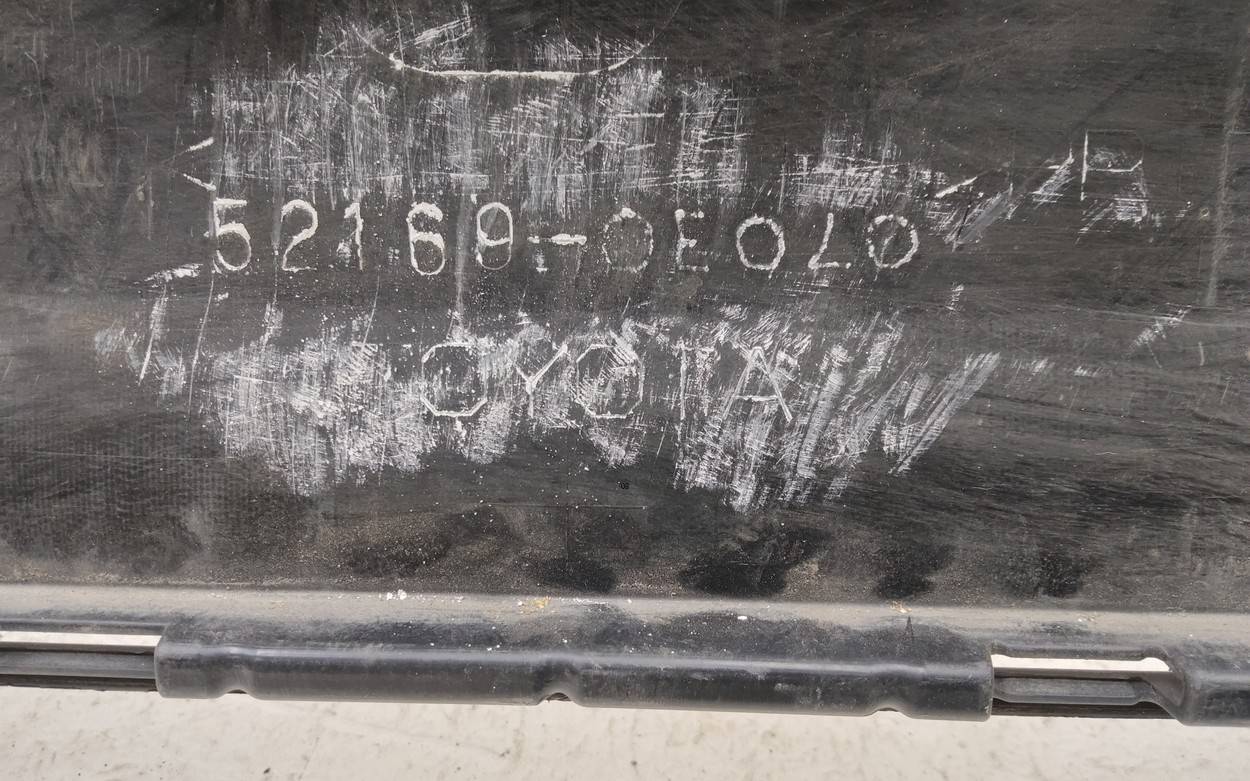 R
52169-0E020
TOYOTA